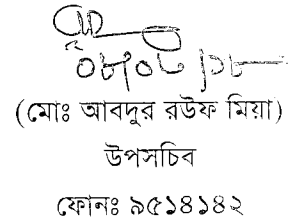 (মোঃ আবদুর রউফ মিয়া)
উপসচিব
ফোনঃ ৯৫১৪১৪২